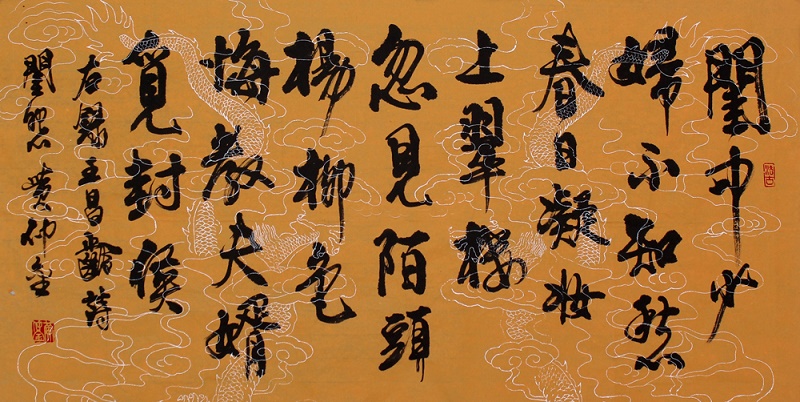 閨中少
婦不知愁
春日凝妝
上翠樓
忽見陌頭
楊柳色
悔教夫婿
覓封侯
右録王昌齡詩
閨怨 黄仲金